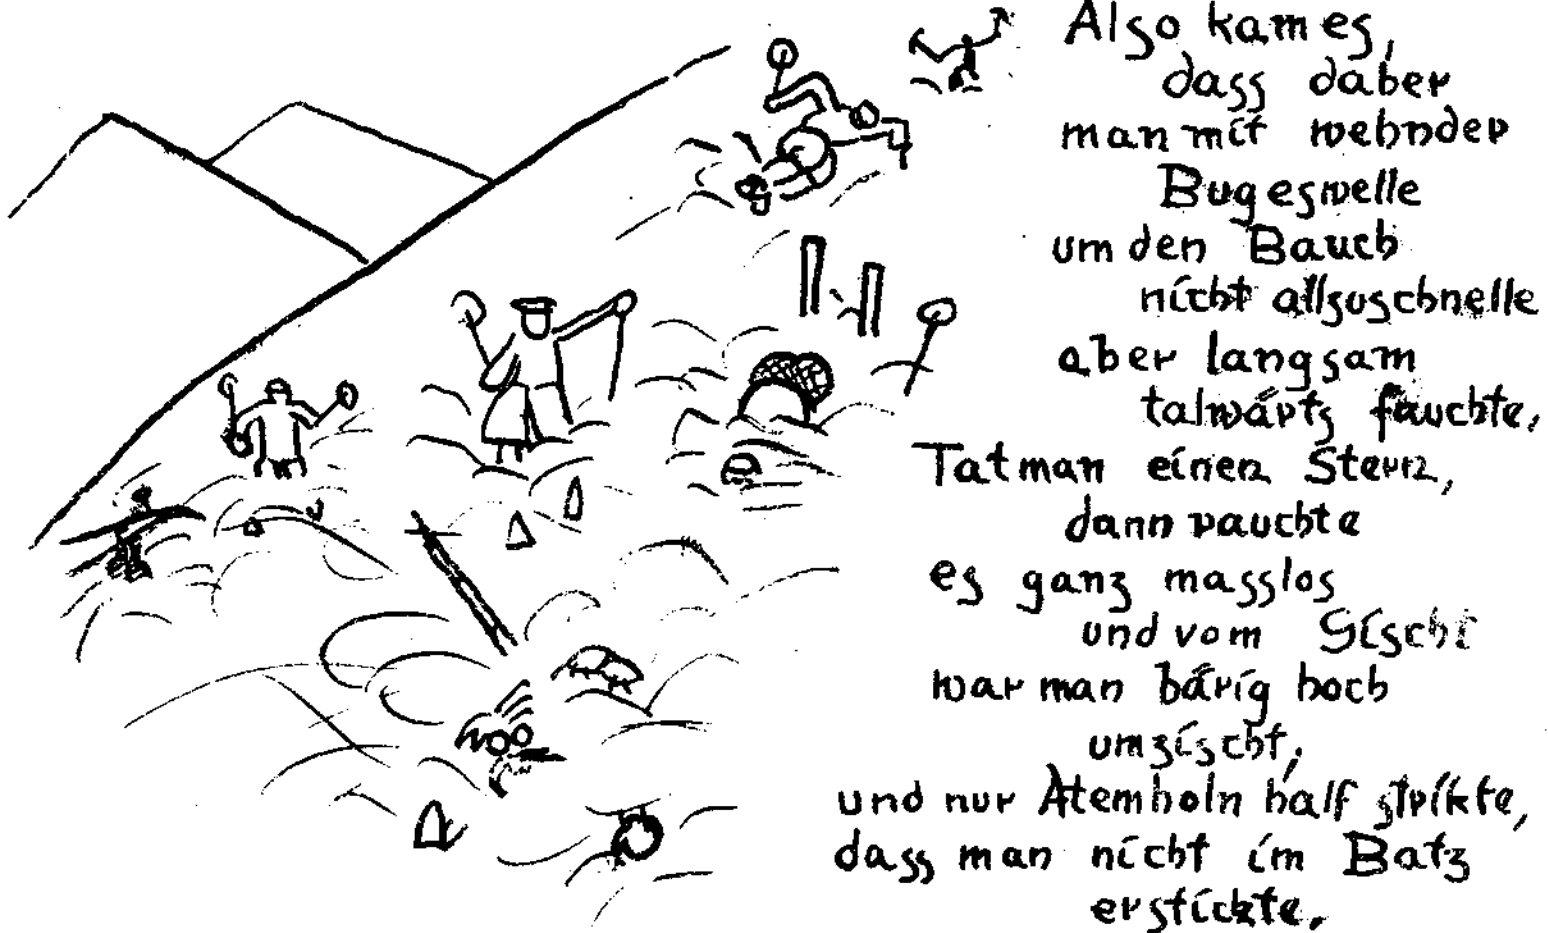 Also kam es,
dass daher
man mit wehnder
Bugeswelle
um den Bauch
nicht allzuschnelle
aber langsam
talwärts fauchte,
Tat man einen Stern,
dann rauchte
es ganz masslos
und vom Gischt
war man bärig hoch
umzischt,
und nur Atemholn half strikte,
dass man nicht im Batz
erstickte.